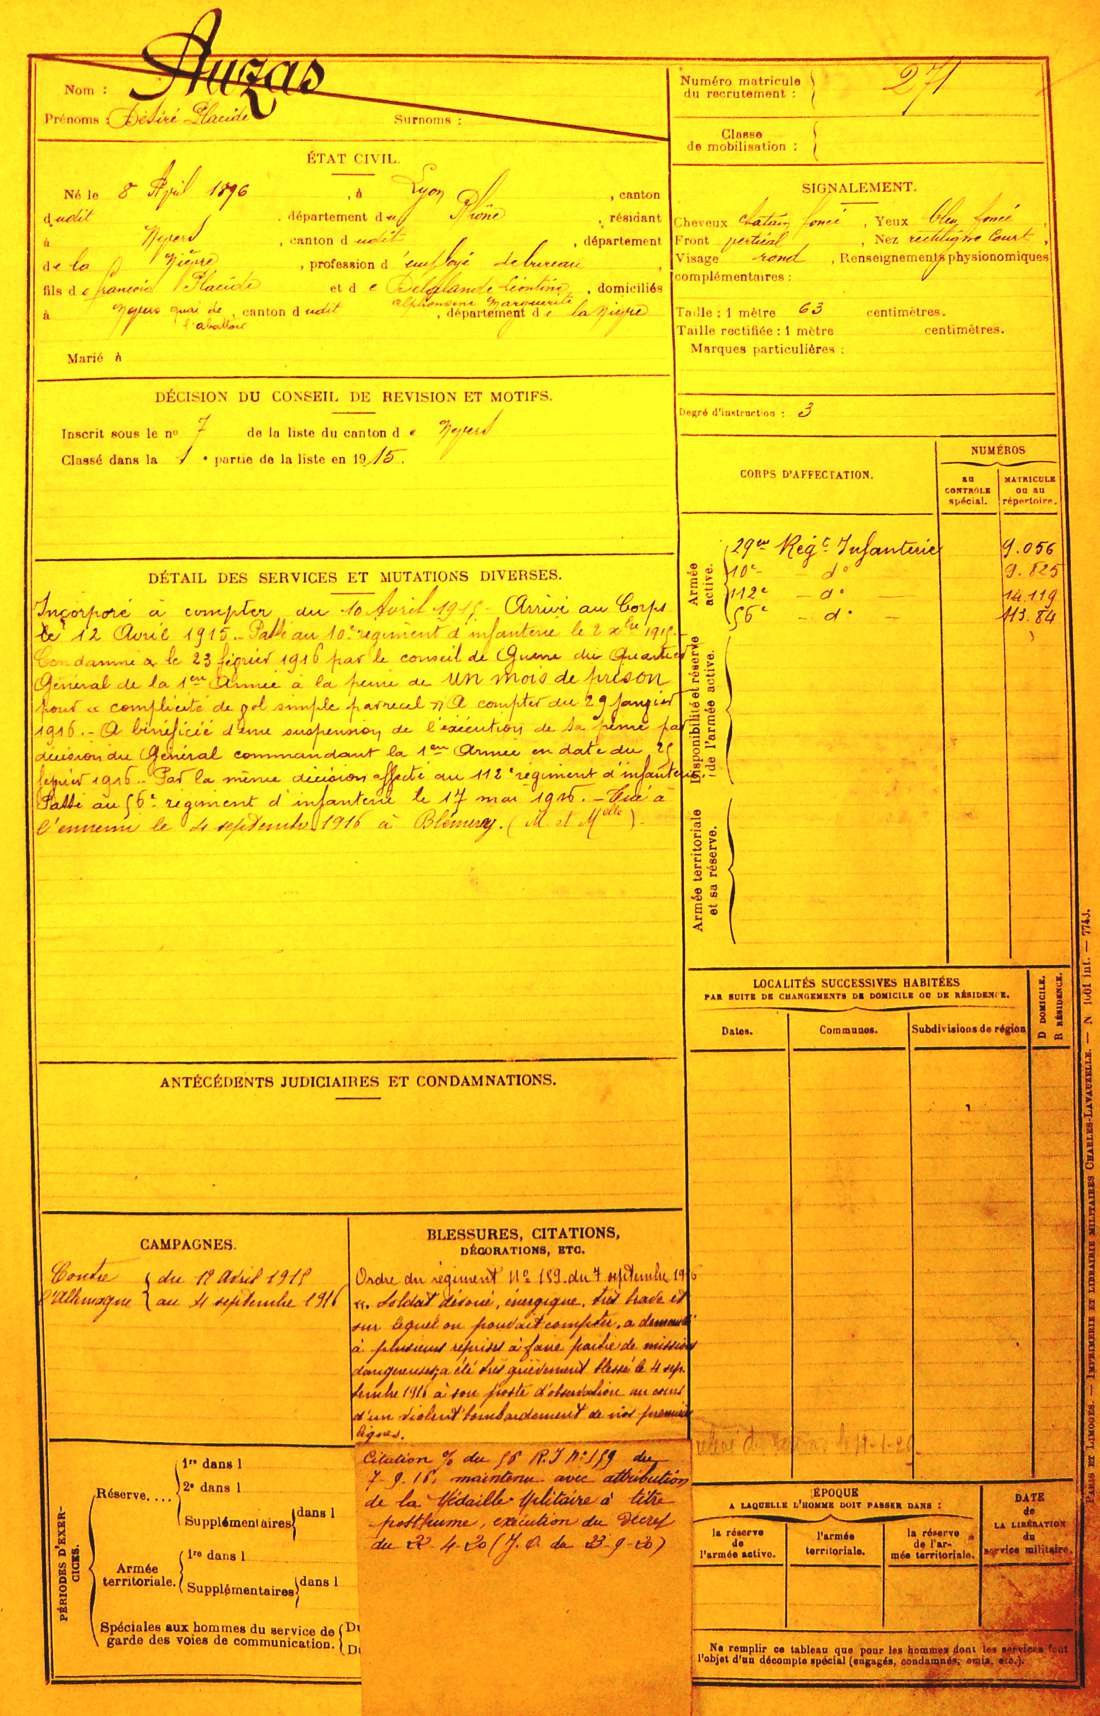 Nom : Auzas
Prénoms : Désiré Placide Surnoms :
Numéro matricule du recrutement : 271
Classe de mobilisation :
ÉTAT CIVIL.
Né le 8 April 1896, à Lyon, canton
dudit, département du Rhône, résidant
à Nevers, canton dudit, département
de la Nièvre, profession d'employé de bureau,
fils de francois Placide et de Belglande Léontine, domiciliés
alphonsine Marguerite
à Nevers quai de l'abattoir, canton dudit, département de la Nièvre
Marié à
SIGNALEMENT.
Cheveux chatain foncé, Yeux bleu foncé,
Front vertical, Nez rectiligne Court,
Visage rond, Renseignements physionomiques
complémentaires :
Taille : 1 mètre 63 centimètres.
Taille rectifiée : 1 mètre centimètres.
Marques particulières :
Degré d'instruction : 3
DÉCISION DU CONSEIL DE REVISION ET MOTIFS.
Inscrit sous le nº 7 de la liste du canton de Nevers
Classé dans la 1e partie de la liste en 1915.
CORPS D'AFFECTATION.
NUMÉROS
AU CONTRÔLE spécial.
MATRICULE ou au répertoire.
Armée active.
29em Regt Infanterie 9.056
10e - dº 9.825
112e - dº - 14.119
56e - dº - 113.84
Disponibilité et réserve de l'armée active.
Armée territoriale et sa réserve.
DÉTAIL DES SERVICES ET MUTATIONS DIVERSES.
Incorporé à compter du 10 Avril 1915 - Arrivé au Corps
le 12 Avril 1915. - Passé au 10e régiment d'infanterie le 2 xbre 1915. -
Condamné le 23 février 1916 par le conseil de Guerre du Quartier
Général de la 1ere Armée à la peine de un mois de prison
pour complicité de vol simple par recel A compter du 29 Janvier
1916. - A bénéficié d'une suspension de l'exécution de sa peine par
décision du Général commandant la 1ere Armée en date du 25
février 1916 - Par la même décision affecté au 112e régiment d'infanterie
Passé au 56e régiment d'infanterie le 17 mai 1916. - Tué à
l'ennemi le 4 septembre 1916 à Blémerey. (M. et Melle) -
LOCALITÉS SUCCESSIVES HABITÉES
PAR SUITE DE CHANGEMENTS DE DOMICILE OU DE RÉSIDENCE.
Dates. Communes. Subdivisions de région
D DOMICILE.
R RÉSIDENCE.
ANTÉCÉDENTS JUDICIAIRES ET CONDAMNATIONS.
CAMPAGNES.
Contre l'Allemagne { du 12 Avril 1915
au 4 septembre 1916
BLESSURES, CITATIONS,
DÉCORATIONS, ETC.
Ordre du régiment Nº 159 du 7 septembre 1916
"Soldat dévoué, énergique, très brave et
sur lequel on pouvait compter, a demandé
à plusieurs reprises à faire partie de missions
dangereuses, a été très grièvement blessé le 4 sep-
tembre 1916 à son poste d'observation au cours
d'un violent bombardement de nos premières
lignes.
Citation % du 56 R.I Nº 159 du
7-9-16, maintenu avec attribution
de la Médaille Militaire à titre
posthume, exécution du Decret
du 22-4-20 (J.O. du 23-9-20)
PÉRIODES D'EXERCICES.
Réserve....
1re dans l
2e dans l
Supplémentaires dans l
Armée territoriale.
1re dans l
Supplémentaires dans l
Spéciales aux hommes du service de
garde des voies de communication.
ÉPOQUE
A LAQUELLE L'HOMME DOIT PASSER DANS :
la réserve de l'armée active.
l'armée territoriale.
la réserve de l'armée territoriale.
DATE de LA LIBÉRATION du service militaire.
Ne remplir ce tableau que pour les hommes dont les services font
l'objet d'un décompte spécial (engagés, condamnés, omis, etc.).
PARIS ET LIMOGES. — IMPRIMERIE ET LIBRAIRIE MILITAIRES CHARLES-LAVAUZELLE. — N 1061 int. — 7743.